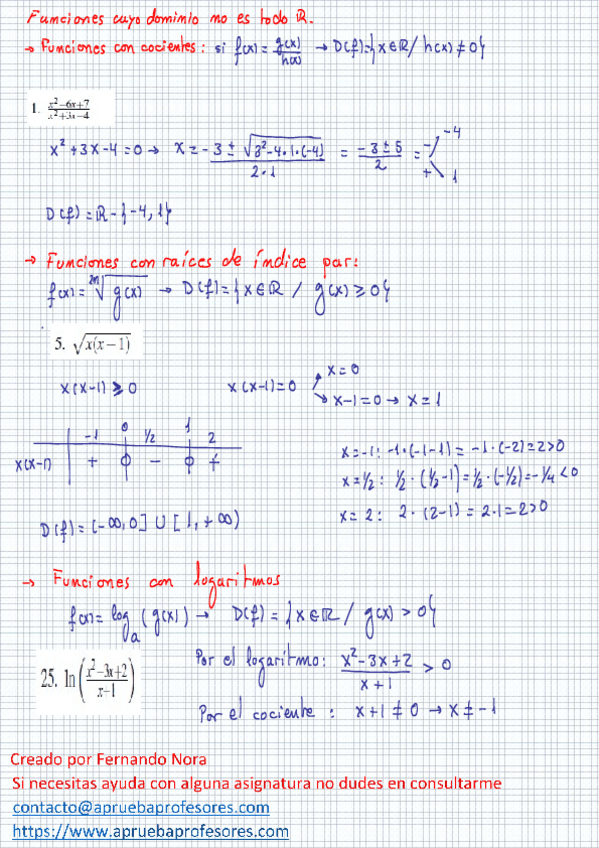 Funciones cuyo dominio no es todo ℝ.
→ Funciones con cocientes: si f(x)= g(x)/h(x) → D(f)={x∈ℝ / h(x)≠0}
1. x²−6x+7 / x²+3x−4
x²+3x−4=0 → x = −3 ± √(3²−4·1·(−4)) / 2·1 = −3±5 / 2 = − −4
+ 1
D(f)=ℝ−{−4, 1}
→ Funciones con raíces de índice par:
f(x)= ²ⁿ√g(x) → D(f)={x∈ℝ / g(x)≥0}
5. √x(x−1)
x(x−1)≥0 x(x−1)=0 x=0
x−1=0 → x=1
−1 0 1/2 1 2
x(x−1) + 0 − 0 +
x=−1: −1·(−1−1)=−1·(−2)=2>0
x=1/2: 1/2·(1/2−1)=1/2·(−1/2)=−1/4<0
x=2: 2·(2−1)=2·1=2>0
D(f)=(−∞,0] ∪ [1,+∞)
→ Funciones con logaritmos
f(x)=logₐ(g(x)) → D(f)={x∈ℝ / g(x)>0}
25. ln(x²−3x+2 / x−1)
Por el logaritmo: x²−3x+2 / x+1 > 0
Por el cociente: x+1≠0 → x≠−1
Creado por Fernando Nora
Si necesitas ayuda con alguna asignatura no dudes en consultarme
contacto@apruebaprofesores.com
https://www.apruebaprofesores.com